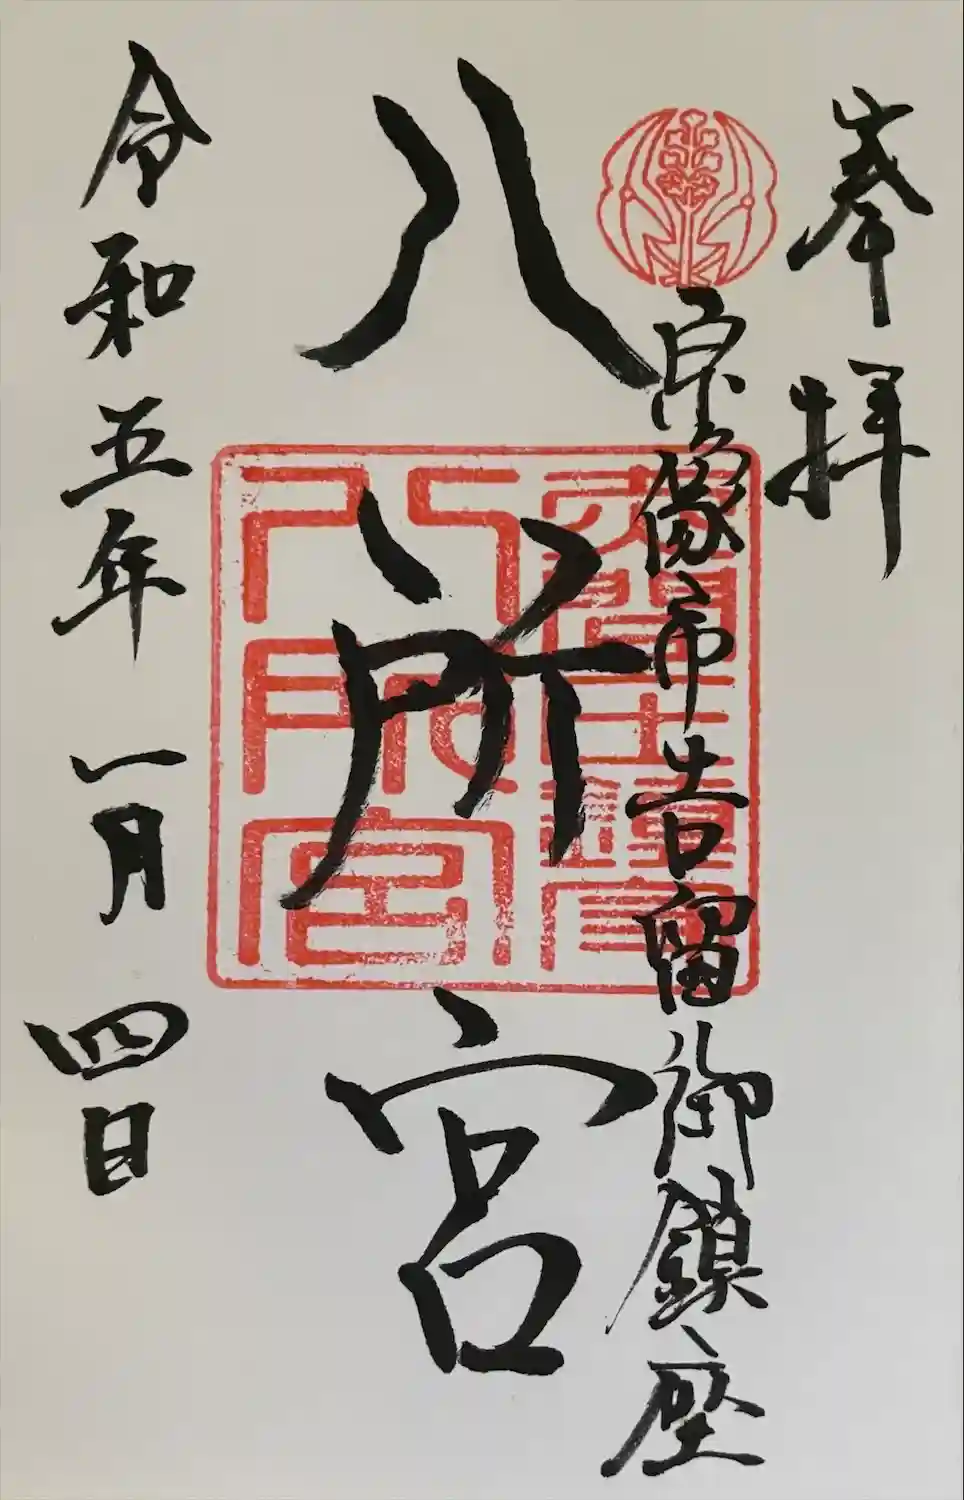 奉拝
宗像市吉留御鎮座
八所宮
令和五年一月四日
八所宮